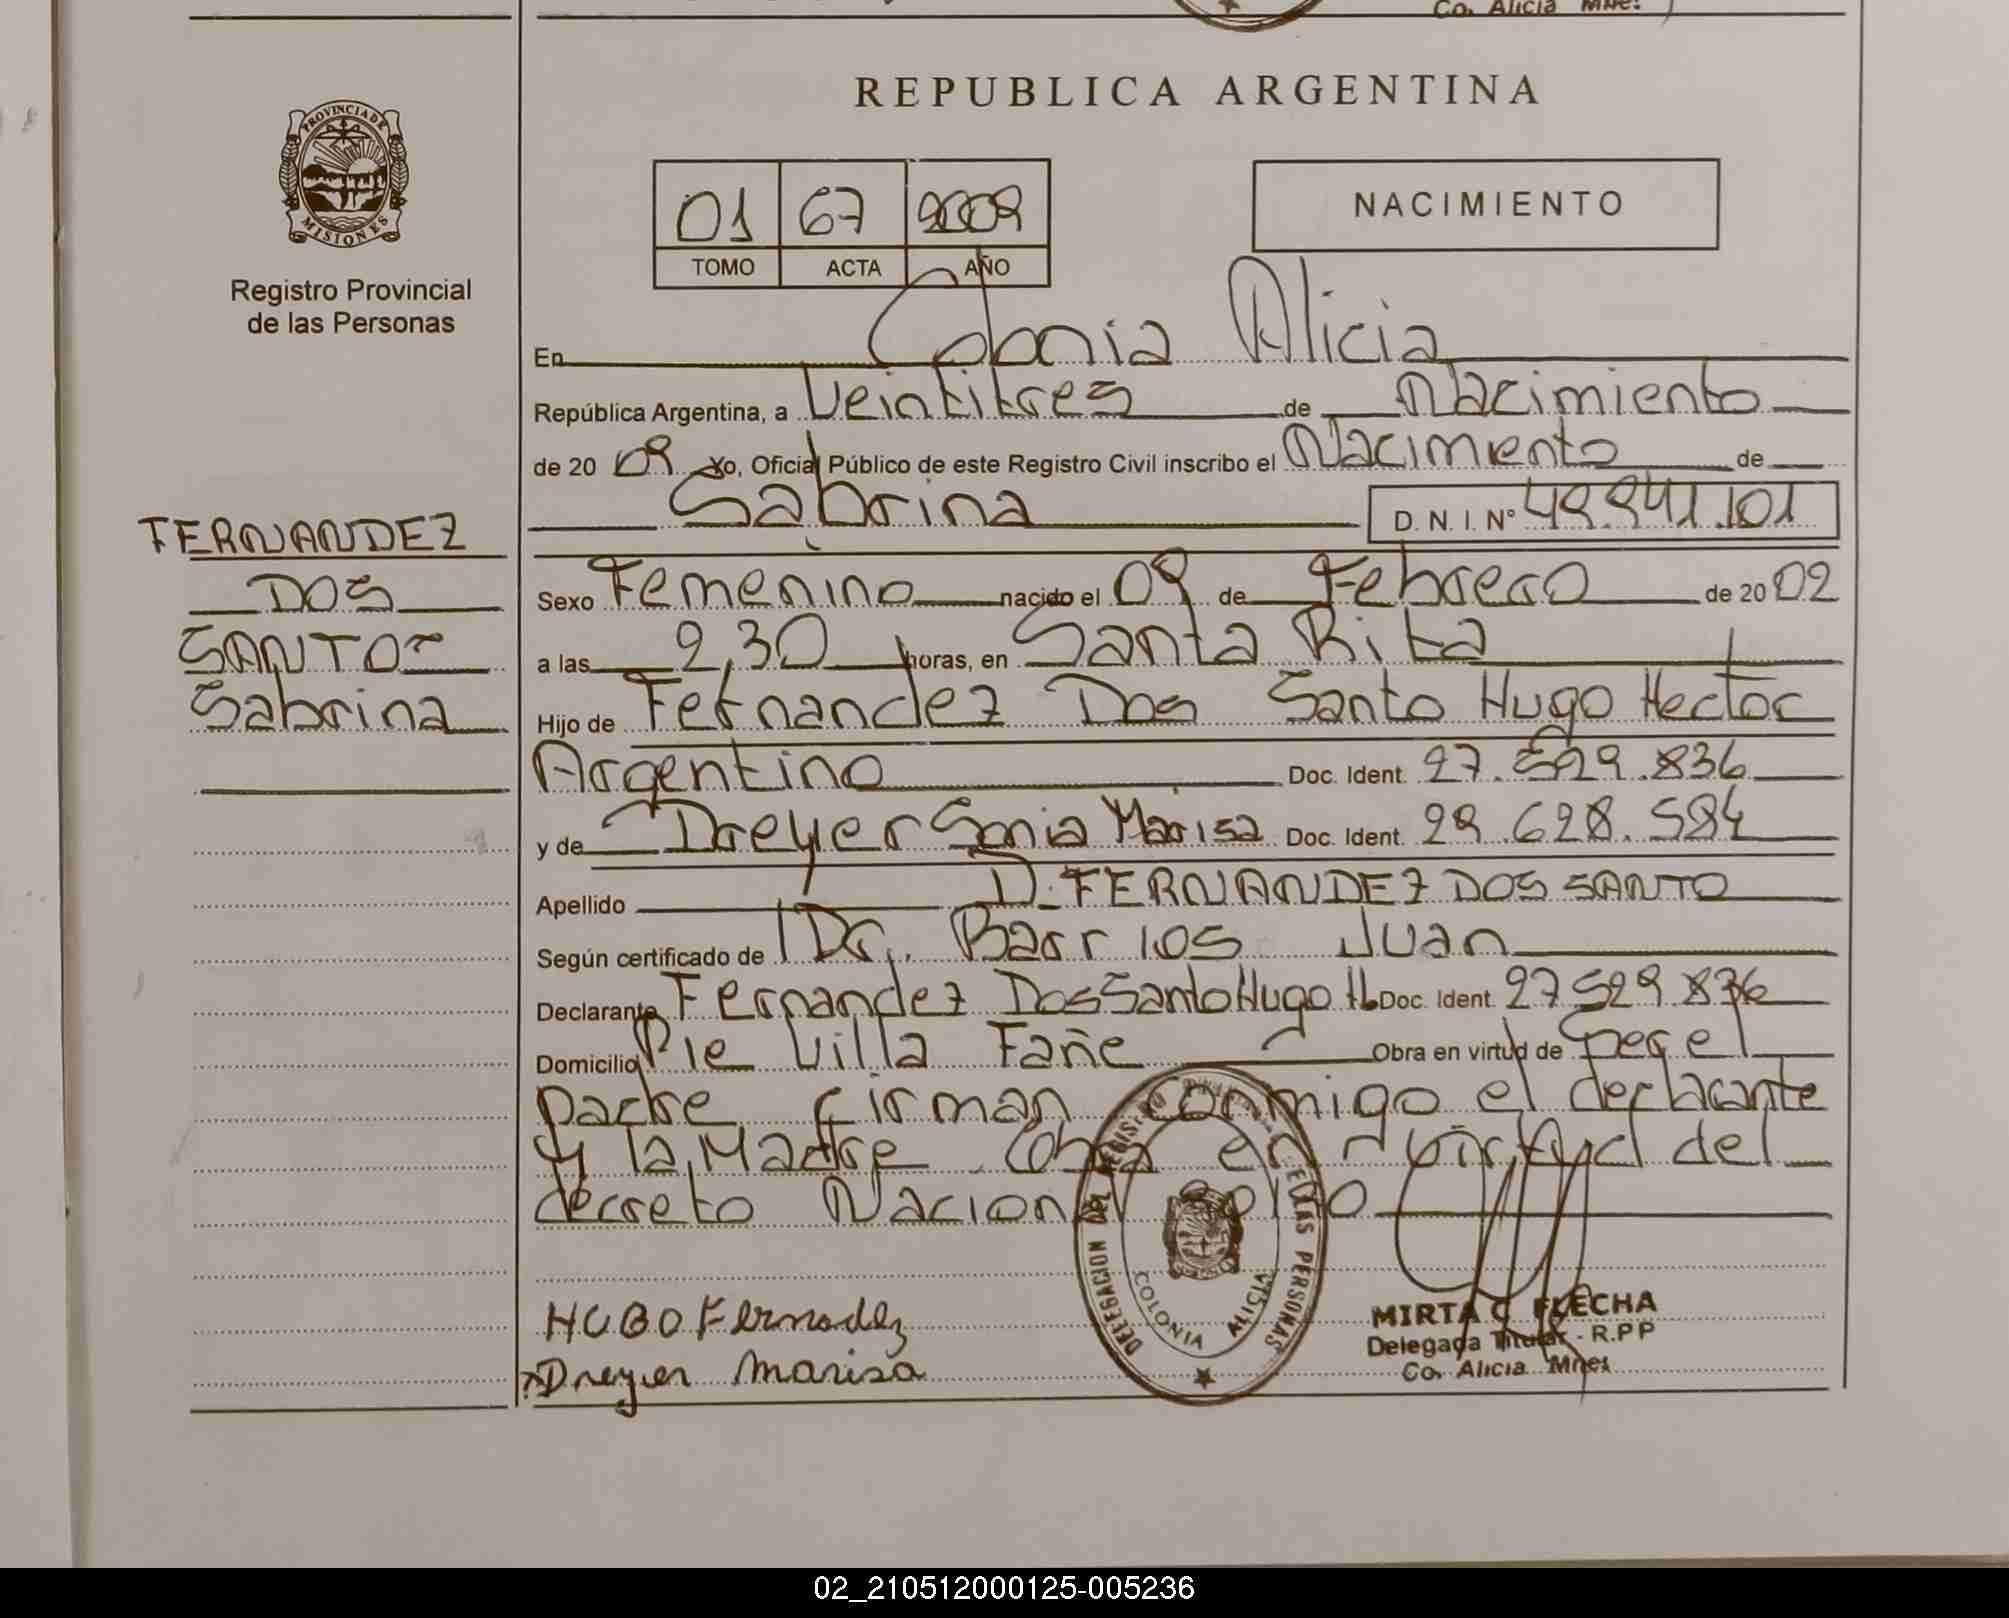 Co. Alicia Mnes.
REPUBLICA ARGENTINA
PROVINCIA DE MISIONES
Registro Provincial
de las Personas
01 67 2009
TOMO ACTA AÑO
NACIMIENTO
En Colonia Alicia
República Argentina, a Veintitres de Nacimiento
de 20 09 Yo, Oficial Público de este Registro Civil inscribo el Nacimiento de
Sabrina D. N. I. Nº 49.941.101
FERNANDEZ
DOS
SANTOS
Sabrina
Sexo Femenino nacido el 09 de Febrero de 20 02
a las 2,30 horas, en Santa Rita
Hijo de Fernandez Dos Santo Hugo Hector
Argentino Doc. Ident. 27.529.836
y de Dreyer Sonia Marisa Doc. Ident. 29.628.584
Apellido D. FERNANDEZ DOS SANTO
Según certificado de Dr. Barrios Juan
Declarante Fernandez Dos Santo Hugo H Doc. Ident. 27529836
Domicilio Pje Villa Fañe Obra en virtud de Ser el
padre firman conmigo el declarante
y la Madre Obra en virtud del
decreto Nacional
HUGO Fernadez
Dreyer Marisa
DELEGACION DEL REGISTRO DE LAS PERSONAS
COLONIA ALICIA
MIRTA C. FLECHA
Delegada Titular - R.P.P
Co. Alicia Mnes
02_210512000125-005236